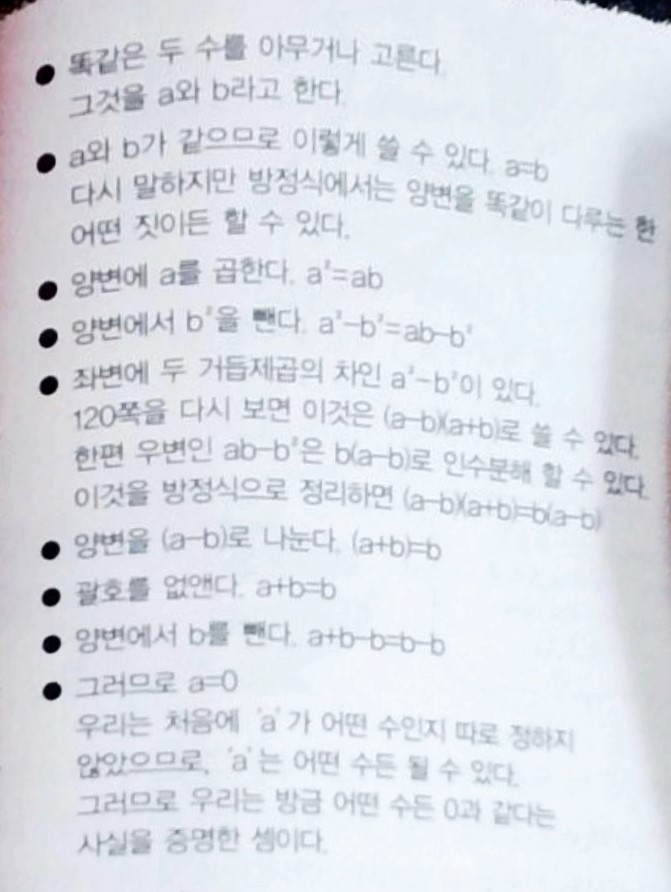 ● 똑같은 두 수를 아무거나 고른다.
그것을 a와 b라고 한다.
● a와 b가 같으므로 이렇게 쓸 수 있다. a=b
다시 말하지만 방정식에서는 양변을 똑같이 다루는 한
어떤 짓이든 할 수 있다.
● 양변에 a를 곱한다. a²=ab
● 양변에서 b²을 뺀다. a²-b²=ab-b²
● 좌변에 두 거듭제곱의 차인 a²-b²이 있다.
120쪽을 다시 보면 이것은 (a-b)(a+b)로 쓸 수 있다.
한편 우변인 ab-b²은 b(a-b)로 인수분해 할 수 있다.
이것을 방정식으로 정리하면 (a-b)(a+b)=b(a-b)
● 양변을 (a-b)로 나눈다. (a+b)=b
● 괄호를 없앤다. a+b=b
● 양변에서 b를 뺀다. a+b-b=b-b
● 그러므로 a=0
우리는 처음에 'a'가 어떤 수인지 따로 정하지
않았으므로, 'a'는 어떤 수든 될 수 있다.
그러므로 우리는 방금 어떤 수든 0과 같다는
사실을 증명한 셈이다.